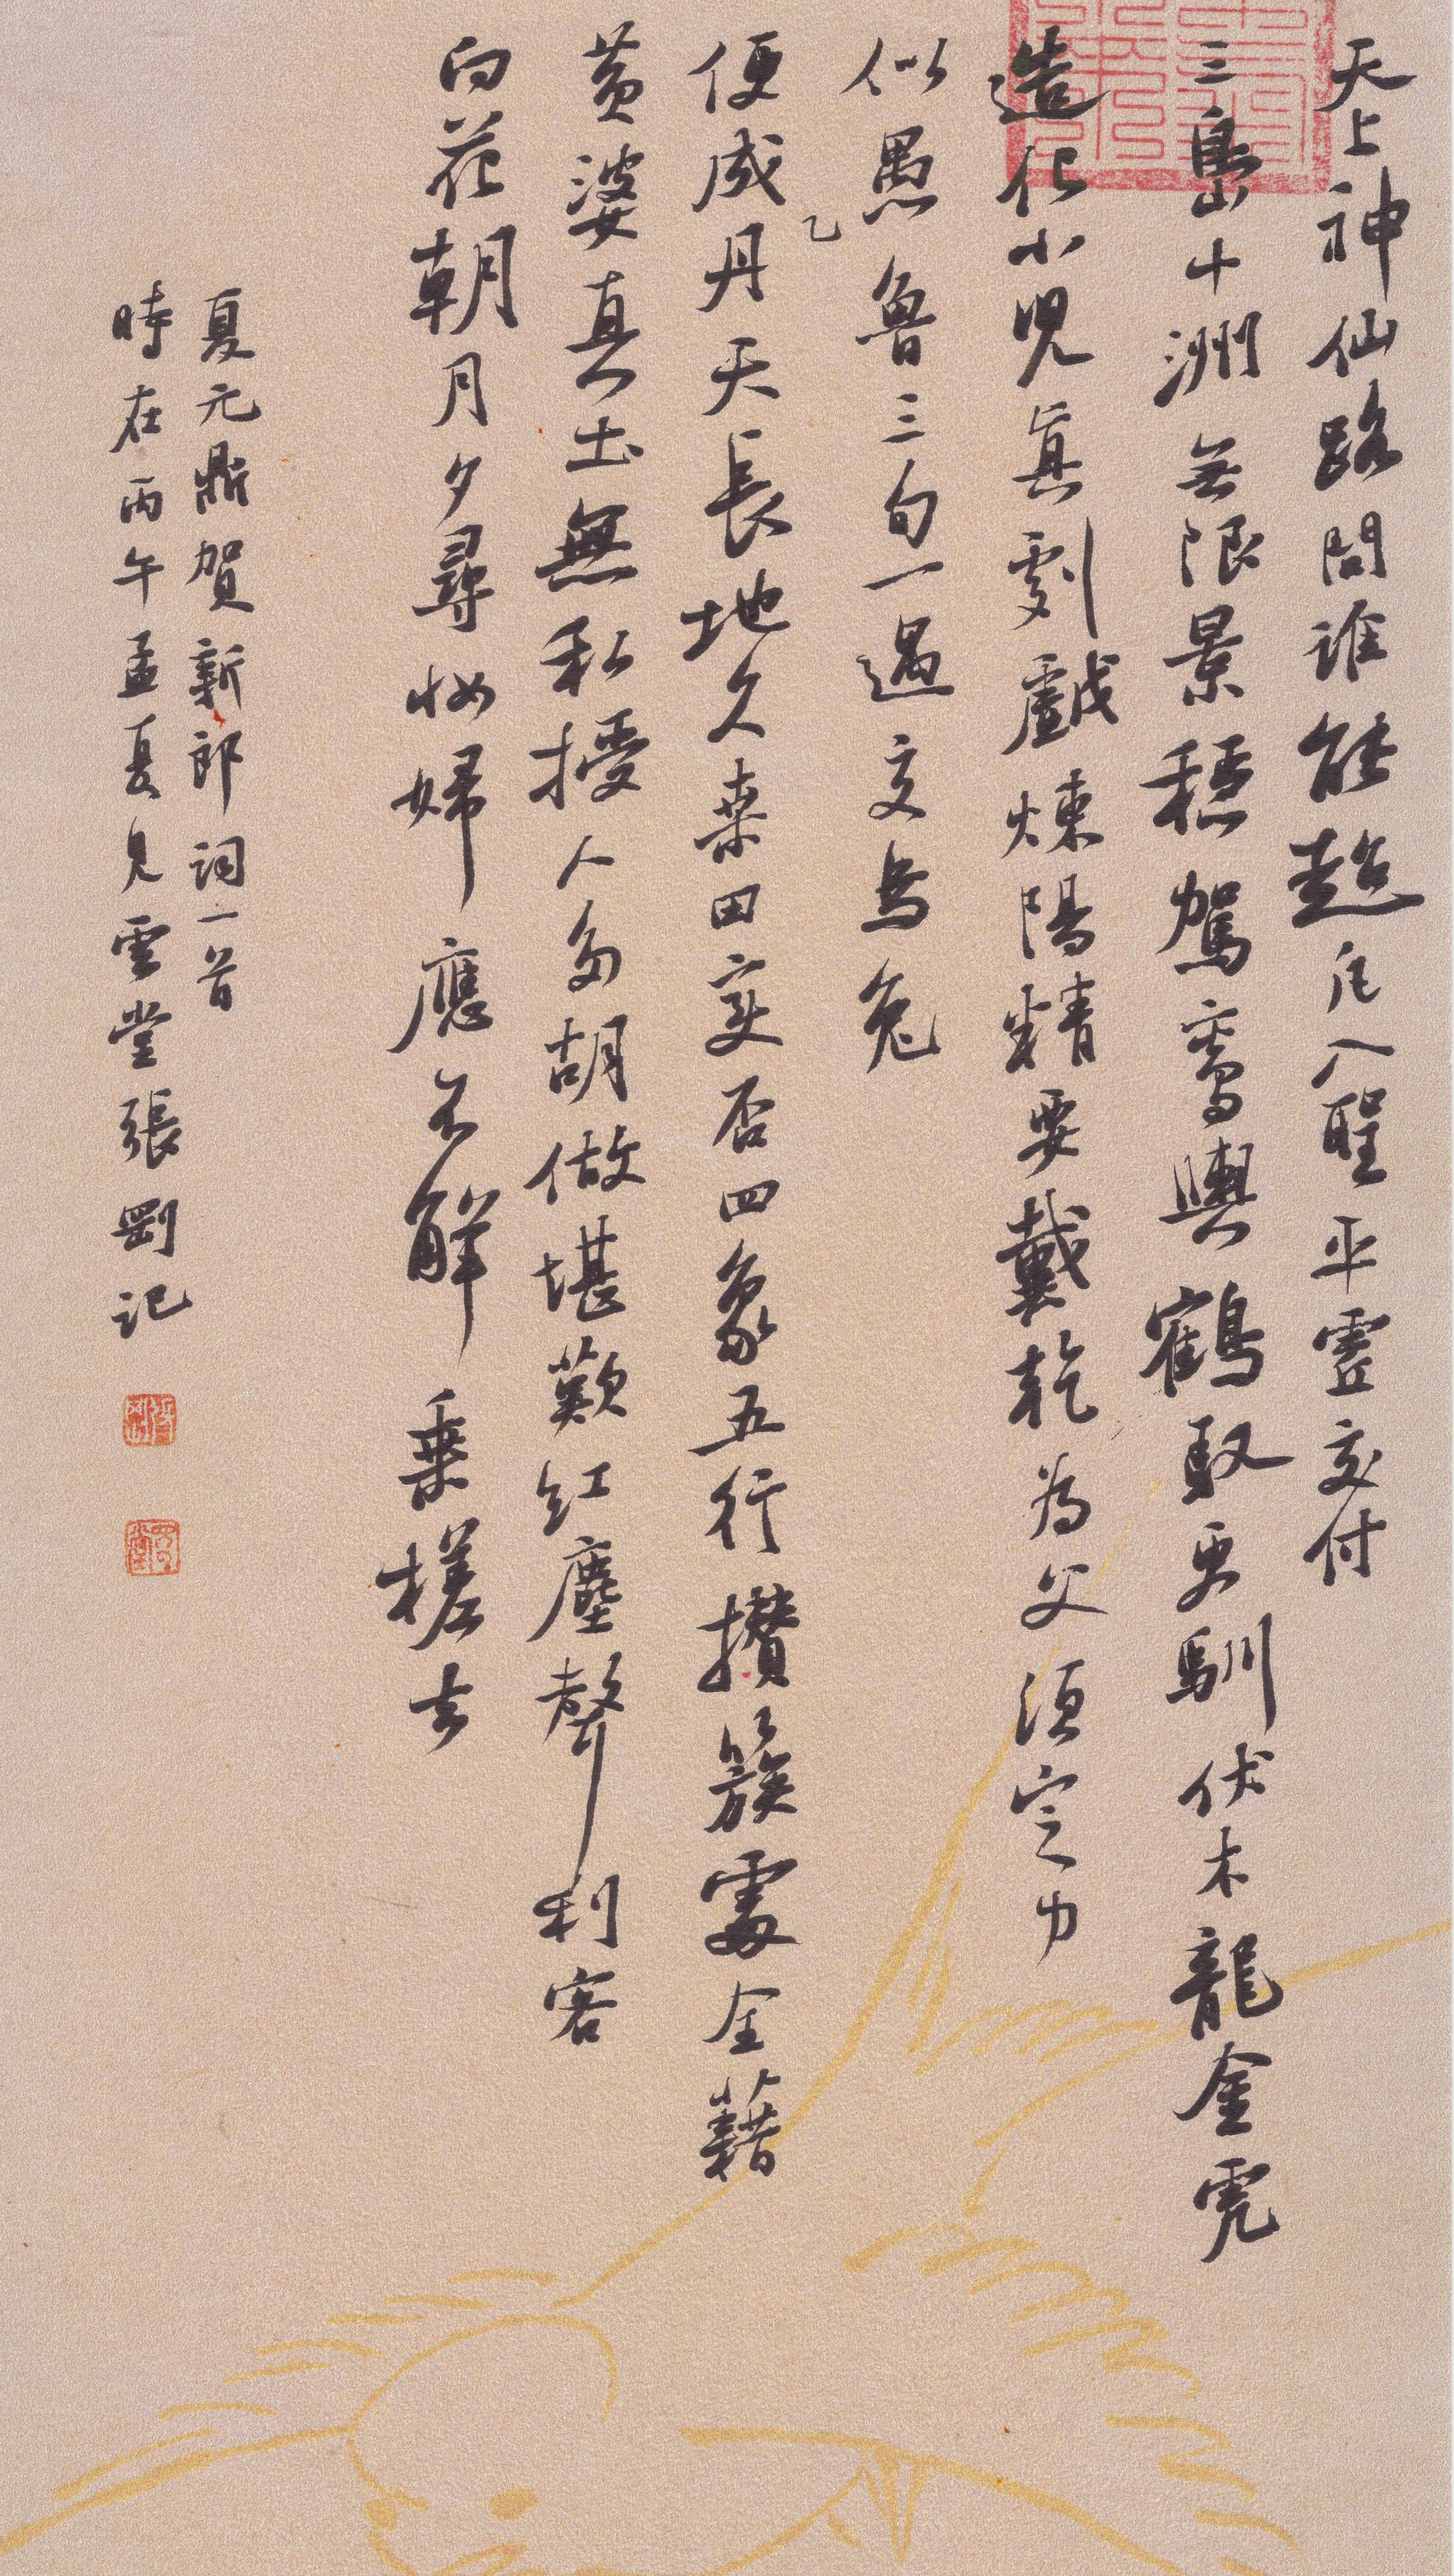 天上神仙路問誰能超凡入聖平虛交付
三島十洲無限景穩駕鸞輿鶴馭更馴伏木龍金虎
造化小兒真劇戲煉陽精要戴乾為父須定力
似愚魯三句一遇交烏兔
乙
便成丹天長地久桒田变否四象五行攅簇處全藉
黃婆真土無私授人多胡做堪歎紅塵聲利客
向花朝月夕尋妝婦應不解乗槎去
夏元鼎賀新郎詞一首
時在丙午孟夏見雲堂張剛記